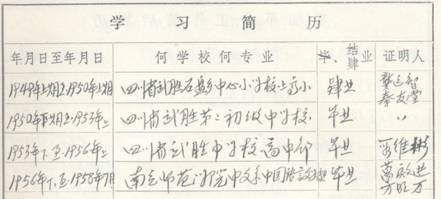 学习简历
年月日至年月日 何学校何专业 毕、结、肄业 证明人
1949年上期至1950年上期 四川省武胜石盘乡中心小学校上高小 肄业
1950年下期至1953年上 四川省武胜第二初级中学校 毕业 〃
1953年下至1956年上 四川省武胜中学校高中部 毕业
1956年下至1958年7月 南充师范学院中文系中国语言文学 毕业